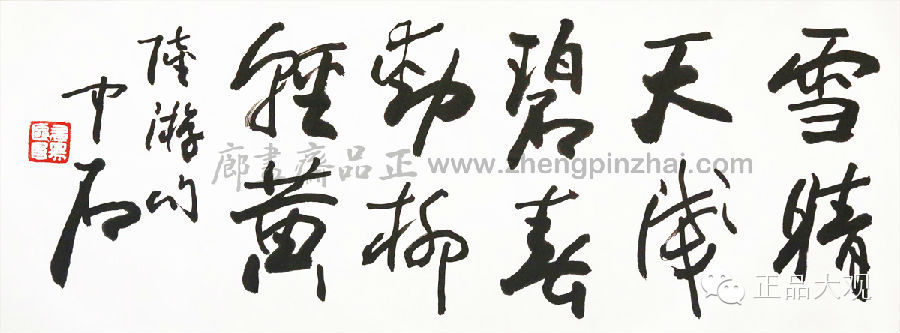 雪晴
天淺
碧春
動柳
輕黃
陸游句
中石
正品齋畫廊 www.zhengpinzhai.com
正品大观